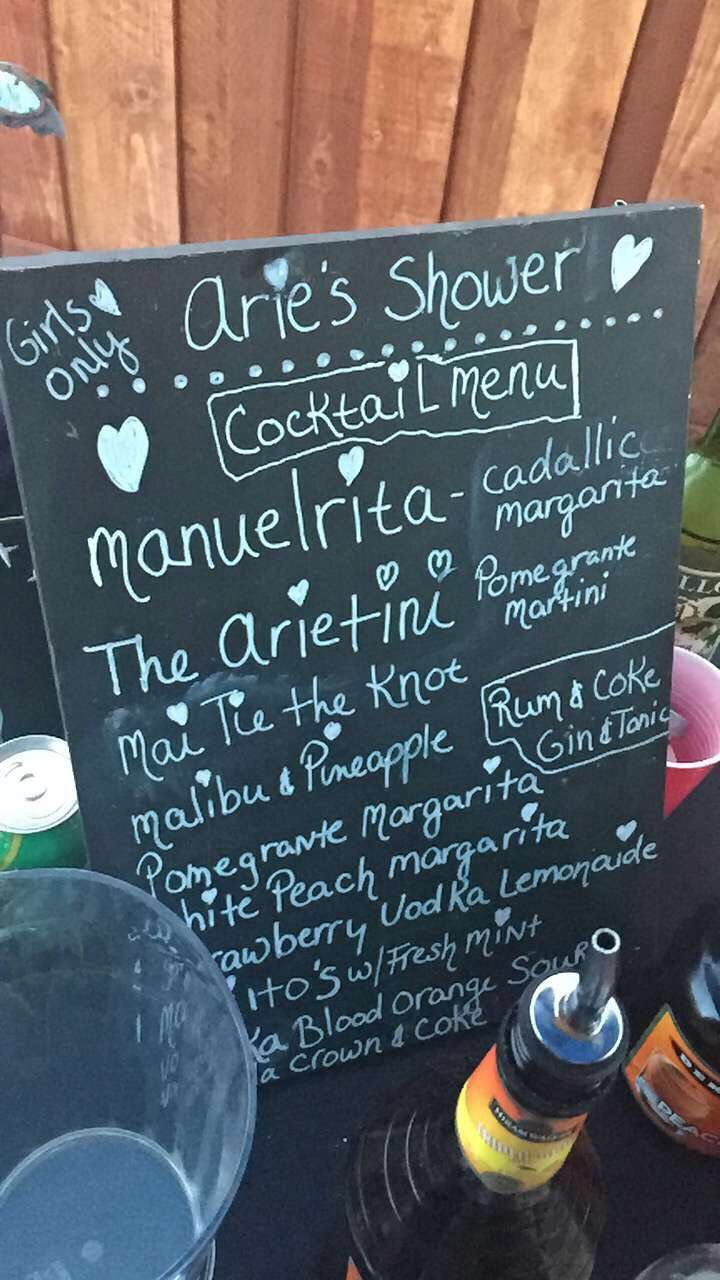 Girls
only
Arie's Shower
Cocktail Menu
manuelrita - cadallic
margarita
The Arietini Pomegrante
Martini
Mai Tie the Knot
Rum & Coke
Gin & Tonic
malibu & Pineapple
Pomegrante Margarita
hite Peach margarita
rawberry Vodka Lemonaide
ito's w/ Fresh Mint
ka Blood Orange Sour
a Crown & Coke